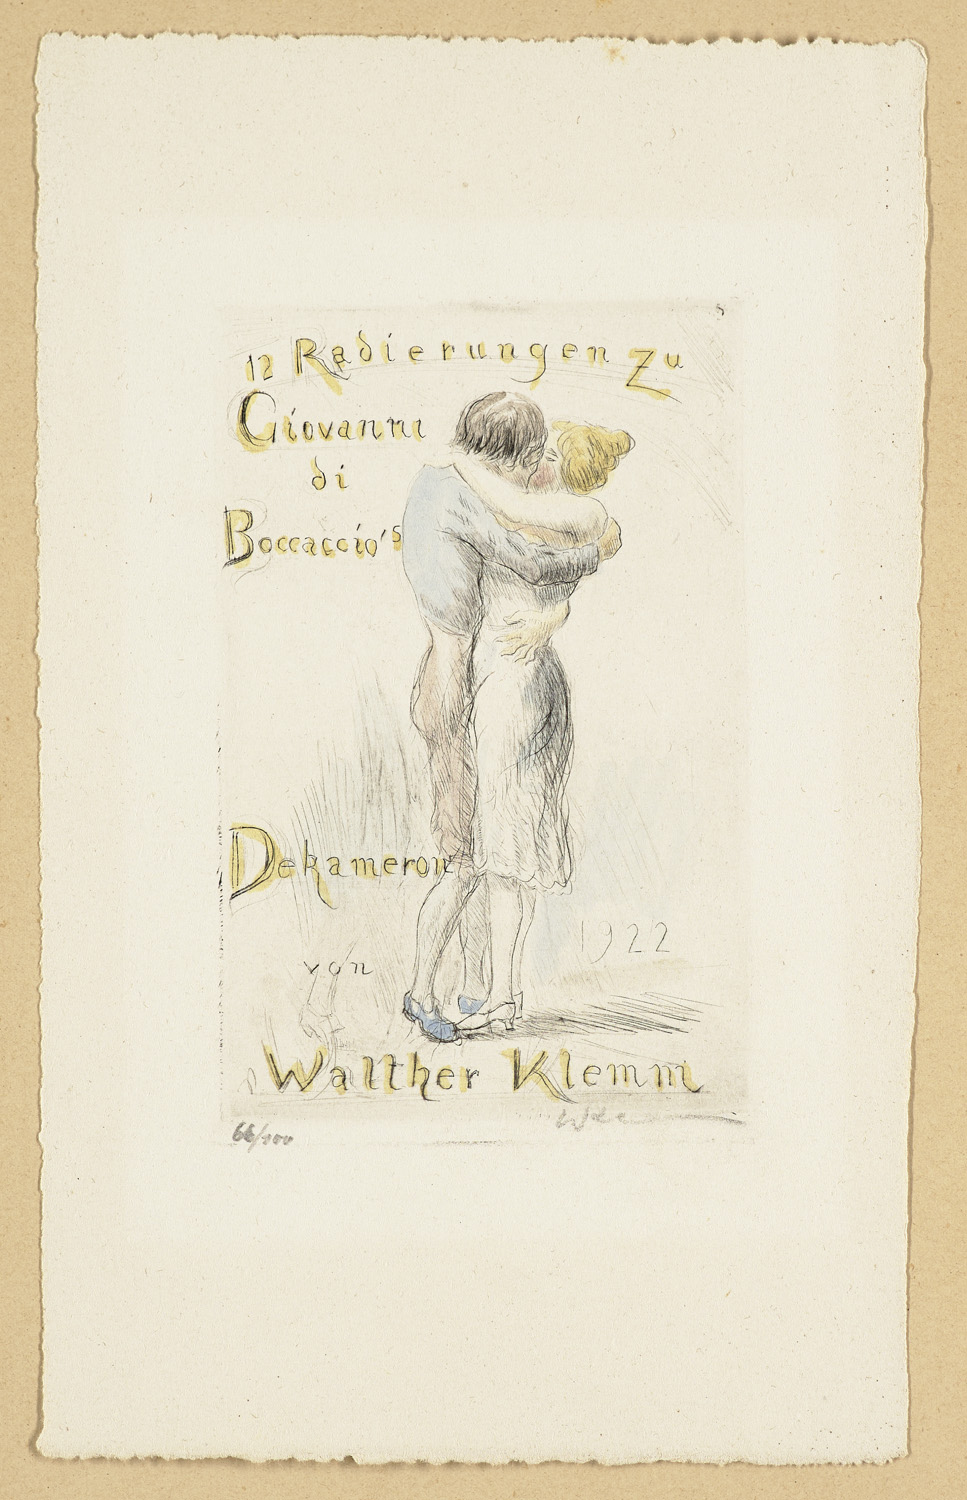 12 Radierungen zu
Giovanni
di
Boccaccio's
Dekameron
1922
von
Walther Klemm
66/100